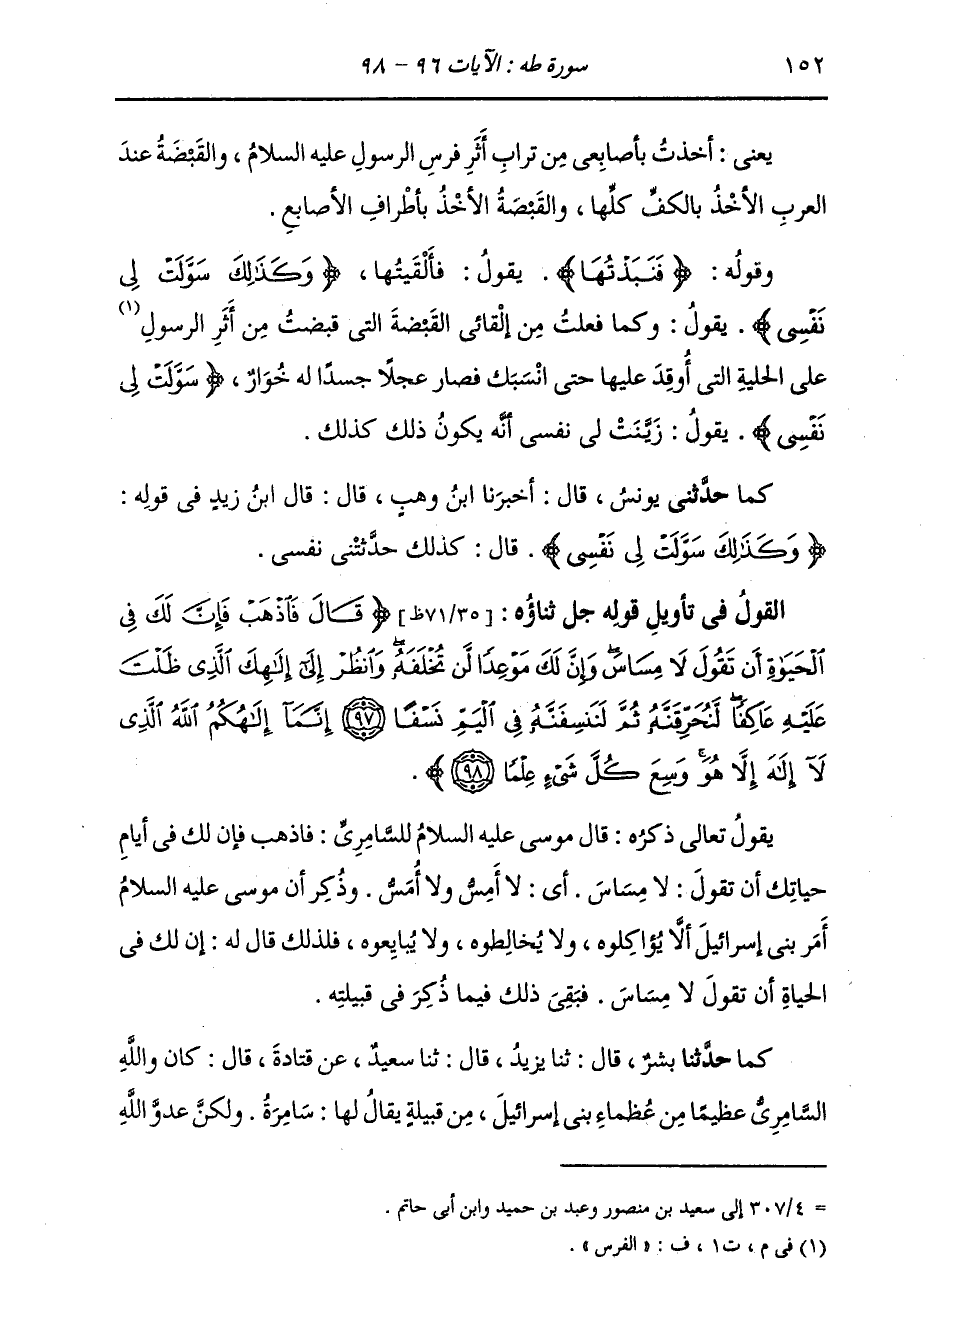 ١٥٢ سورة طه : الآيات ٩٦ - ٩٨
يعنى : أخذتُ بأصابِعى مِن ترابِ أَثَرِ فرسِ الرسولِ عليه السلامُ ، والقَبْضةُ عندَ
العربِ الأخْذُ بالكفِّ كلِّها ، والقَبْصَةُ الأخْذُ بأطْرافِ الأصابعِ .
وقولُه : ﴿ فَنَبَذْتُهَا ﴾ . يقولُ : فأَلْقَيتُها ، ﴿ وَكَذَٰلِكَ سَوَّلَتْ لِى
نَفْسِى ﴾ . يقولُ : وكما فعلتُ مِن إلْقائى القَبْضةَ التى قبضتُ مِن أَثَرِ الرسولِ(١)
على الحليةِ التى أُوقِدَ عليها حتى انْسَبَك فصار عجلًا جسدًا له خُوَارٌ ، ﴿ سَوَّلَتْ لِى
نَفْسِى ﴾ . يقولُ : زَيَّنَتْ لى نفسى أنَّه يكونُ ذلك كذلك .
كما حدَّثنى يونسُ ، قال : أخبرَنا ابنُ وهبٍ ، قال : قال ابنُ زيدٍ فى قولِه :
﴿ وَكَذَٰلِكَ سَوَّلَتْ لِى نَفْسِى ﴾ . قال : كذلك حدَّثتْنى نفسى .
القولُ فى تأويلِ قولِه جل ثناؤه : [٧١/٣٥ظ] ﴿ قَالَ فَٱذْهَبْ فَإِنَّ لَكَ فِى
ٱلْحَيَوٰةِ أَن تَقُولَ لَا مِسَاسَ وَإِنَّ لَكَ مَوْعِدًا لَّن تُخْلَفَهُۥ وَٱنظُرْ إِلَىٰٓ إِلَٰهِكَ ٱلَّذِى ظَلْتَ
عَلَيْهِ عَاكِفًا لَّنُحَرِّقَنَّهُۥ ثُمَّ لَنَنسِفَنَّهُۥ فِى ٱلْيَمِّ نَسْفًا ٩٧ إِنَّمَآ إِلَٰهُكُمُ ٱللَّهُ ٱلَّذِى
لَآ إِلَٰهَ إِلَّا هُوَ وَسِعَ كُلَّ شَىْءٍ عِلْمًا ٩٨ ﴾ .
يقولُ تعالى ذكرُه : قال موسى عليه السلامُ للسَّامِرىِّ : فاذهب فإن لك فى أيامِ
حياتِك أن تقولَ : لا مِسَاسَ . أى : لا أَمِسُّ ولا أُمَسُّ . وذُكِر أن موسى عليه السلامُ
أَمَر بنى إسرائيلَ ألَّا يُؤاكِلوه ، ولا يُخالِطوه ، ولا يُبايِعوه ، فلذلك قال له : إن لك فى
الحياةِ أن تقولَ لا مِسَاسَ . فبَقِىَ ذلك فيما ذُكِرَ فى قبيلتِه .
كما حدَّثنا بشرٌ ، قال : ثنا يزيدُ ، قال : ثنا سعيدٌ ، عن قتادةَ ، قال : كان واللَّهِ
السَّامِرىُّ عظيمًا مِن عُظماءِ بنى إسرائيلَ ، مِن قبيلةٍ يقالُ لها : سَامِرَةُ . ولكنَّ عدوَّ اللَّهِ
= ٣٠٧/٤ إلى سعيد بن منصور وعبد بن حميد وابن أبى حاتم .
(١) فى م ، ت١ ، ف : « الفرس » .